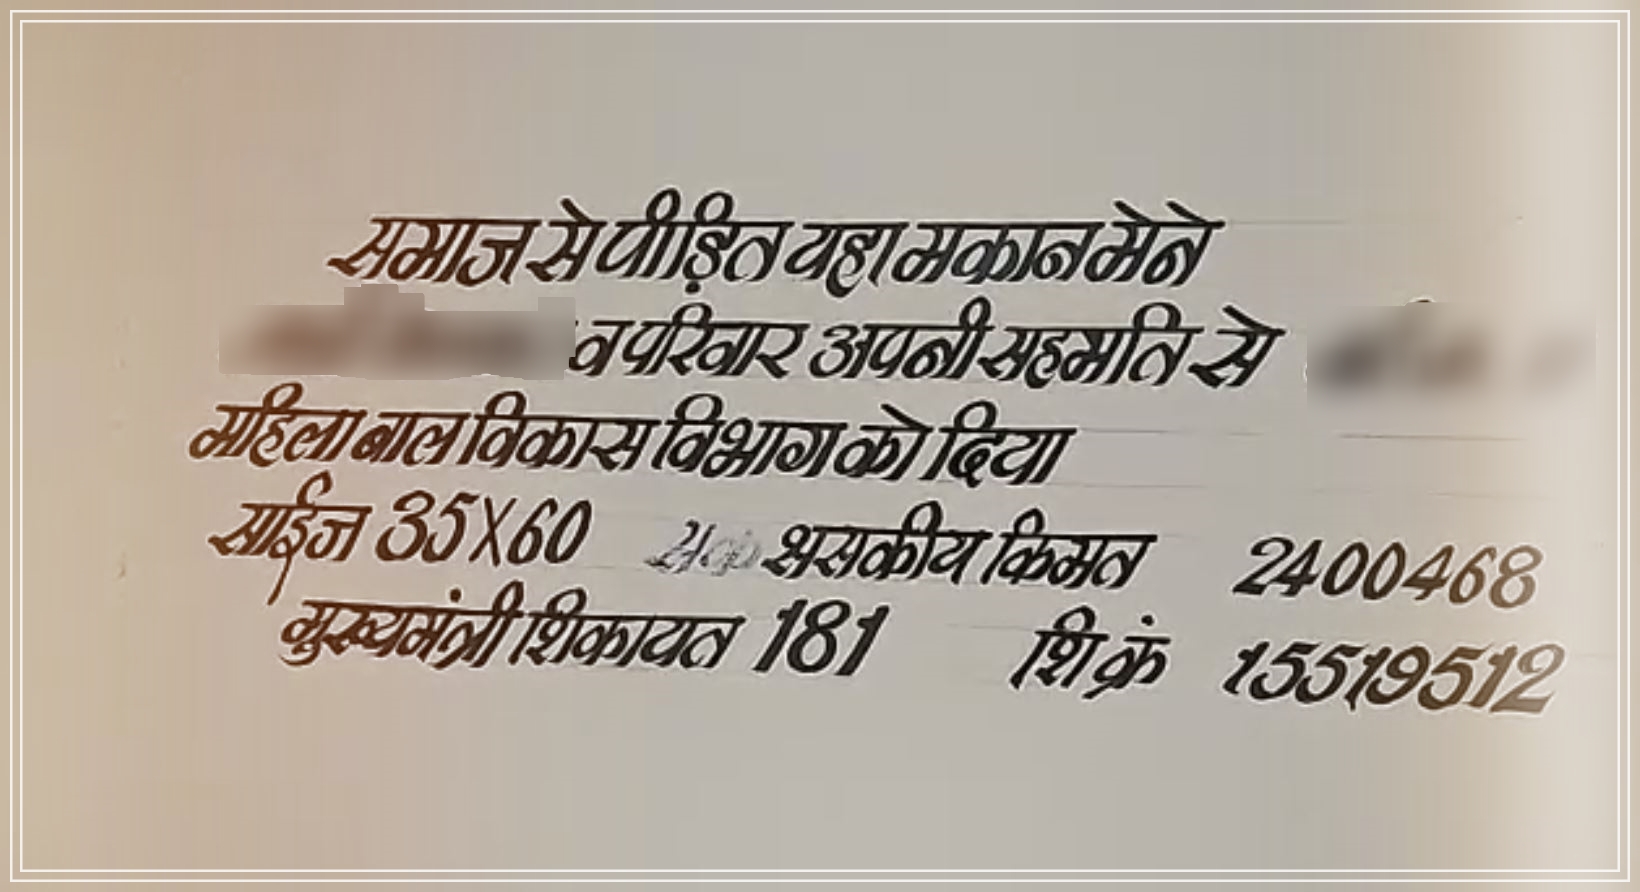 समाज से पीड़ित यहा मकान मेने
व परिवार अपनी सहमति से
महिला बाल विकास विभाग को दिया
साईज 35X60 शासकीय किमत 2400468
मुख्यमंत्री शिकायत 181 शि क्रं 15519512